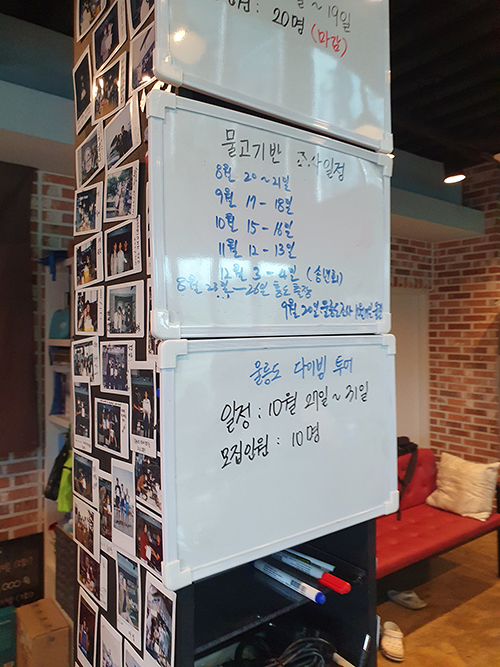 ~ 19일
20명 (마감)
물고기반 조사일정
8월 20~21일
9월 17-18일
10월 15-16일
11월 12-13일
12월 3-4일 (송년회)
8월 23일-26일 홍도출장
9월 20일 울릉도
울릉도 다이빙 투어
일정 : 10월 27일~31일
모집인원 : 10명